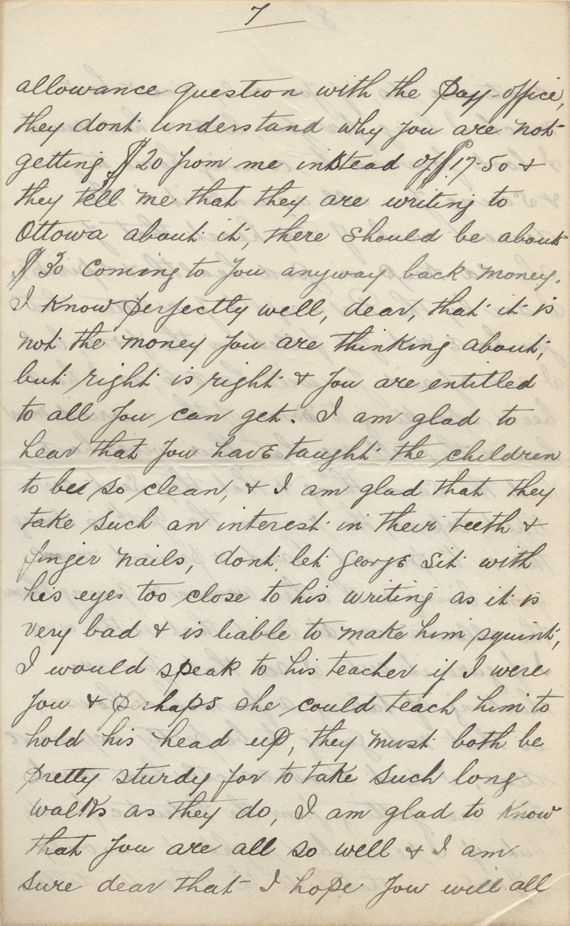 7
allowance question with the Pay-office,
they dont understand why you are not
getting $20 from me instead of $17-50 &
they tell me that they are writing to
Ottowa about it, there should be about
$30 coming to you anyway back money.
I know perfectly well, dear, that it is
not the money you are thinking about,
but right is right & you are entitled
to all you can get. I am glad to
hear that you have taught the children
to be so clean, & I am glad that they
take such an interest in their teeth &
finger nails, dont let George sit with
his eyes too close to his writing as it is
very bad & is liable to make him squint,
I would speak to his teacher if I were
you & perhaps she could teach him to
hold his head up, they must both be
pretty sturdy for to take such long
walks as they do, I am glad to know
that you are all so well & I am
sure dear that I hope you will all